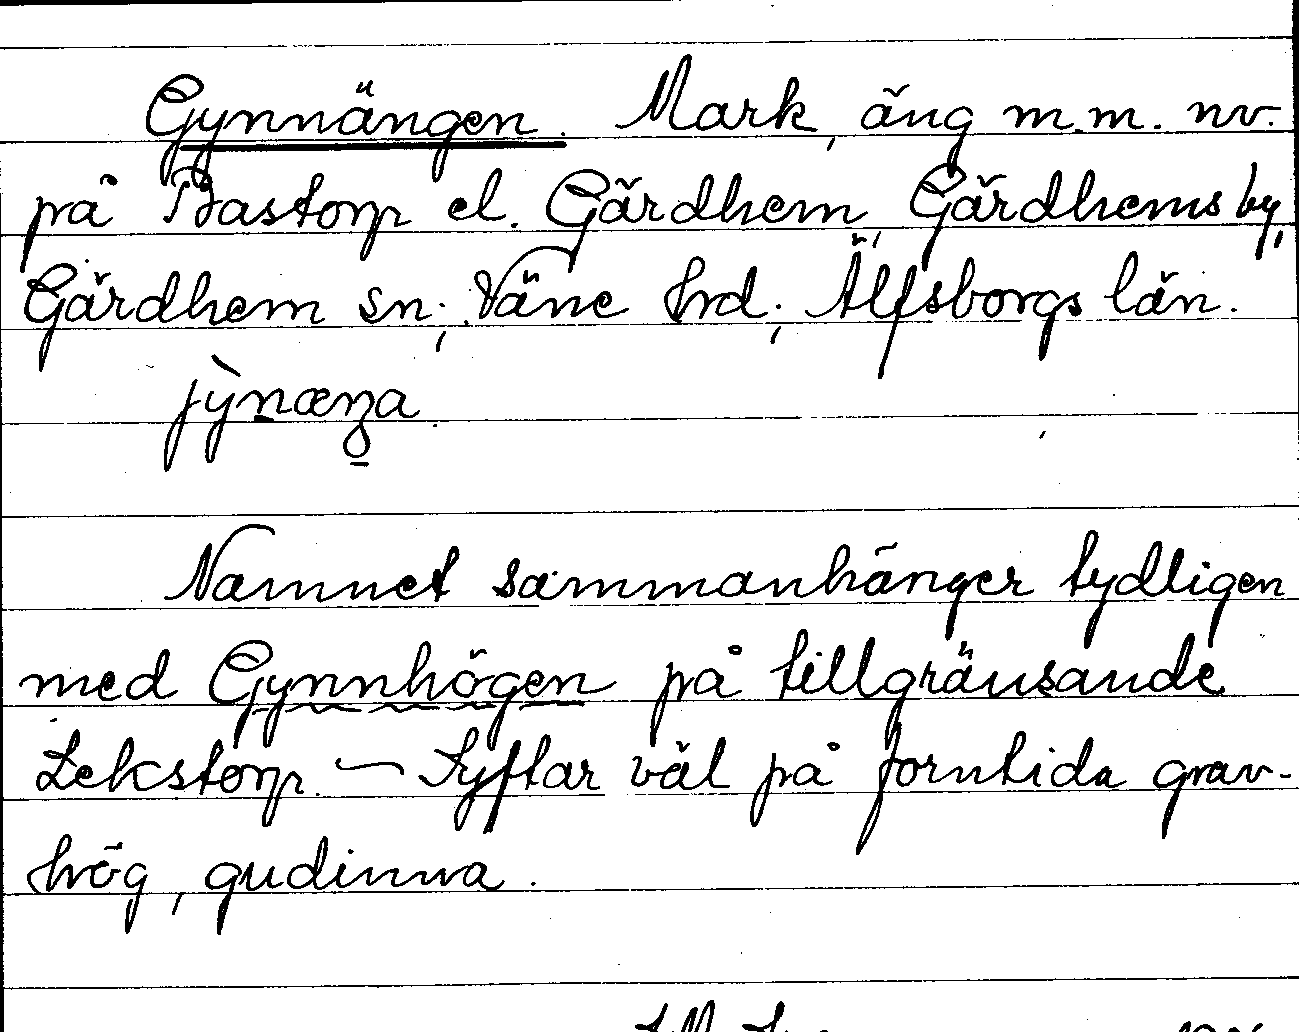 Gynnängen. Mark, äng m.m. nv.
på Bastorp el. Gärdhem, Gärdhems by,
Gärdhem sn, Väne hrd, Älfsborgs län.
jỳnæŋa.
Namnet sammanhänger tydligen
med Gynnhögen på tillgränsande
Lekstorp. — Syftar väl på forntida grav-
hög, gudinna.